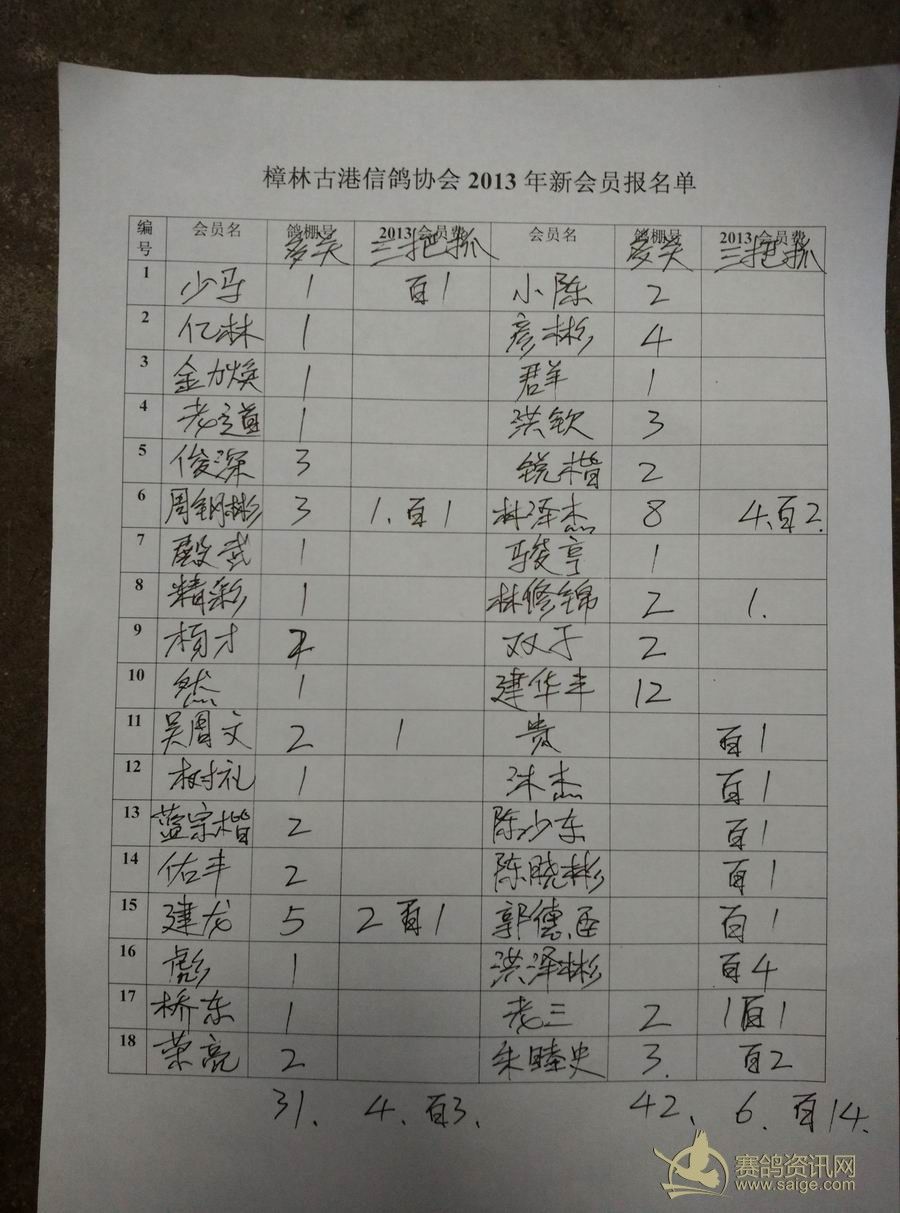 樟林古港信鸽协会 2013 年新会员报名单
编号 会员名 鸽棚号 2013 会员费 会员名 鸽棚号 2013 会员费
多关 三把抓 多关 三把抓
1 少马 1 百1 小陈 2
2 亿林 1 彦彬 4
3 金力焕 1 群 1
4 老道 1 洪钦 3
5 俊深 3 锐楷 2
6 周钢彬 3 1.百1 林泽杰 8 4.百2.
7 殿武 1 骏亨 1
8 精彩 1 林修锦 2 1.
9 柏才 2 双于 2
10 然 1 建华丰 12
11 吴周文 2 1 贵 百1
12 树礼 1 沐杰 百1
13 蓝宗楷 2 陈少东 百1
14 佑丰 2 陈晓彬 百1
15 建龙 5 2百1 郭德 百1
16 彪 1 洪泽彬 百4
17 桥东 1 老三 2 1百1
18 荣亮 2 朱睦史 3. 百2
31. 4.百3. 42. 6.百14.
赛鸽资讯网
www.saige.com